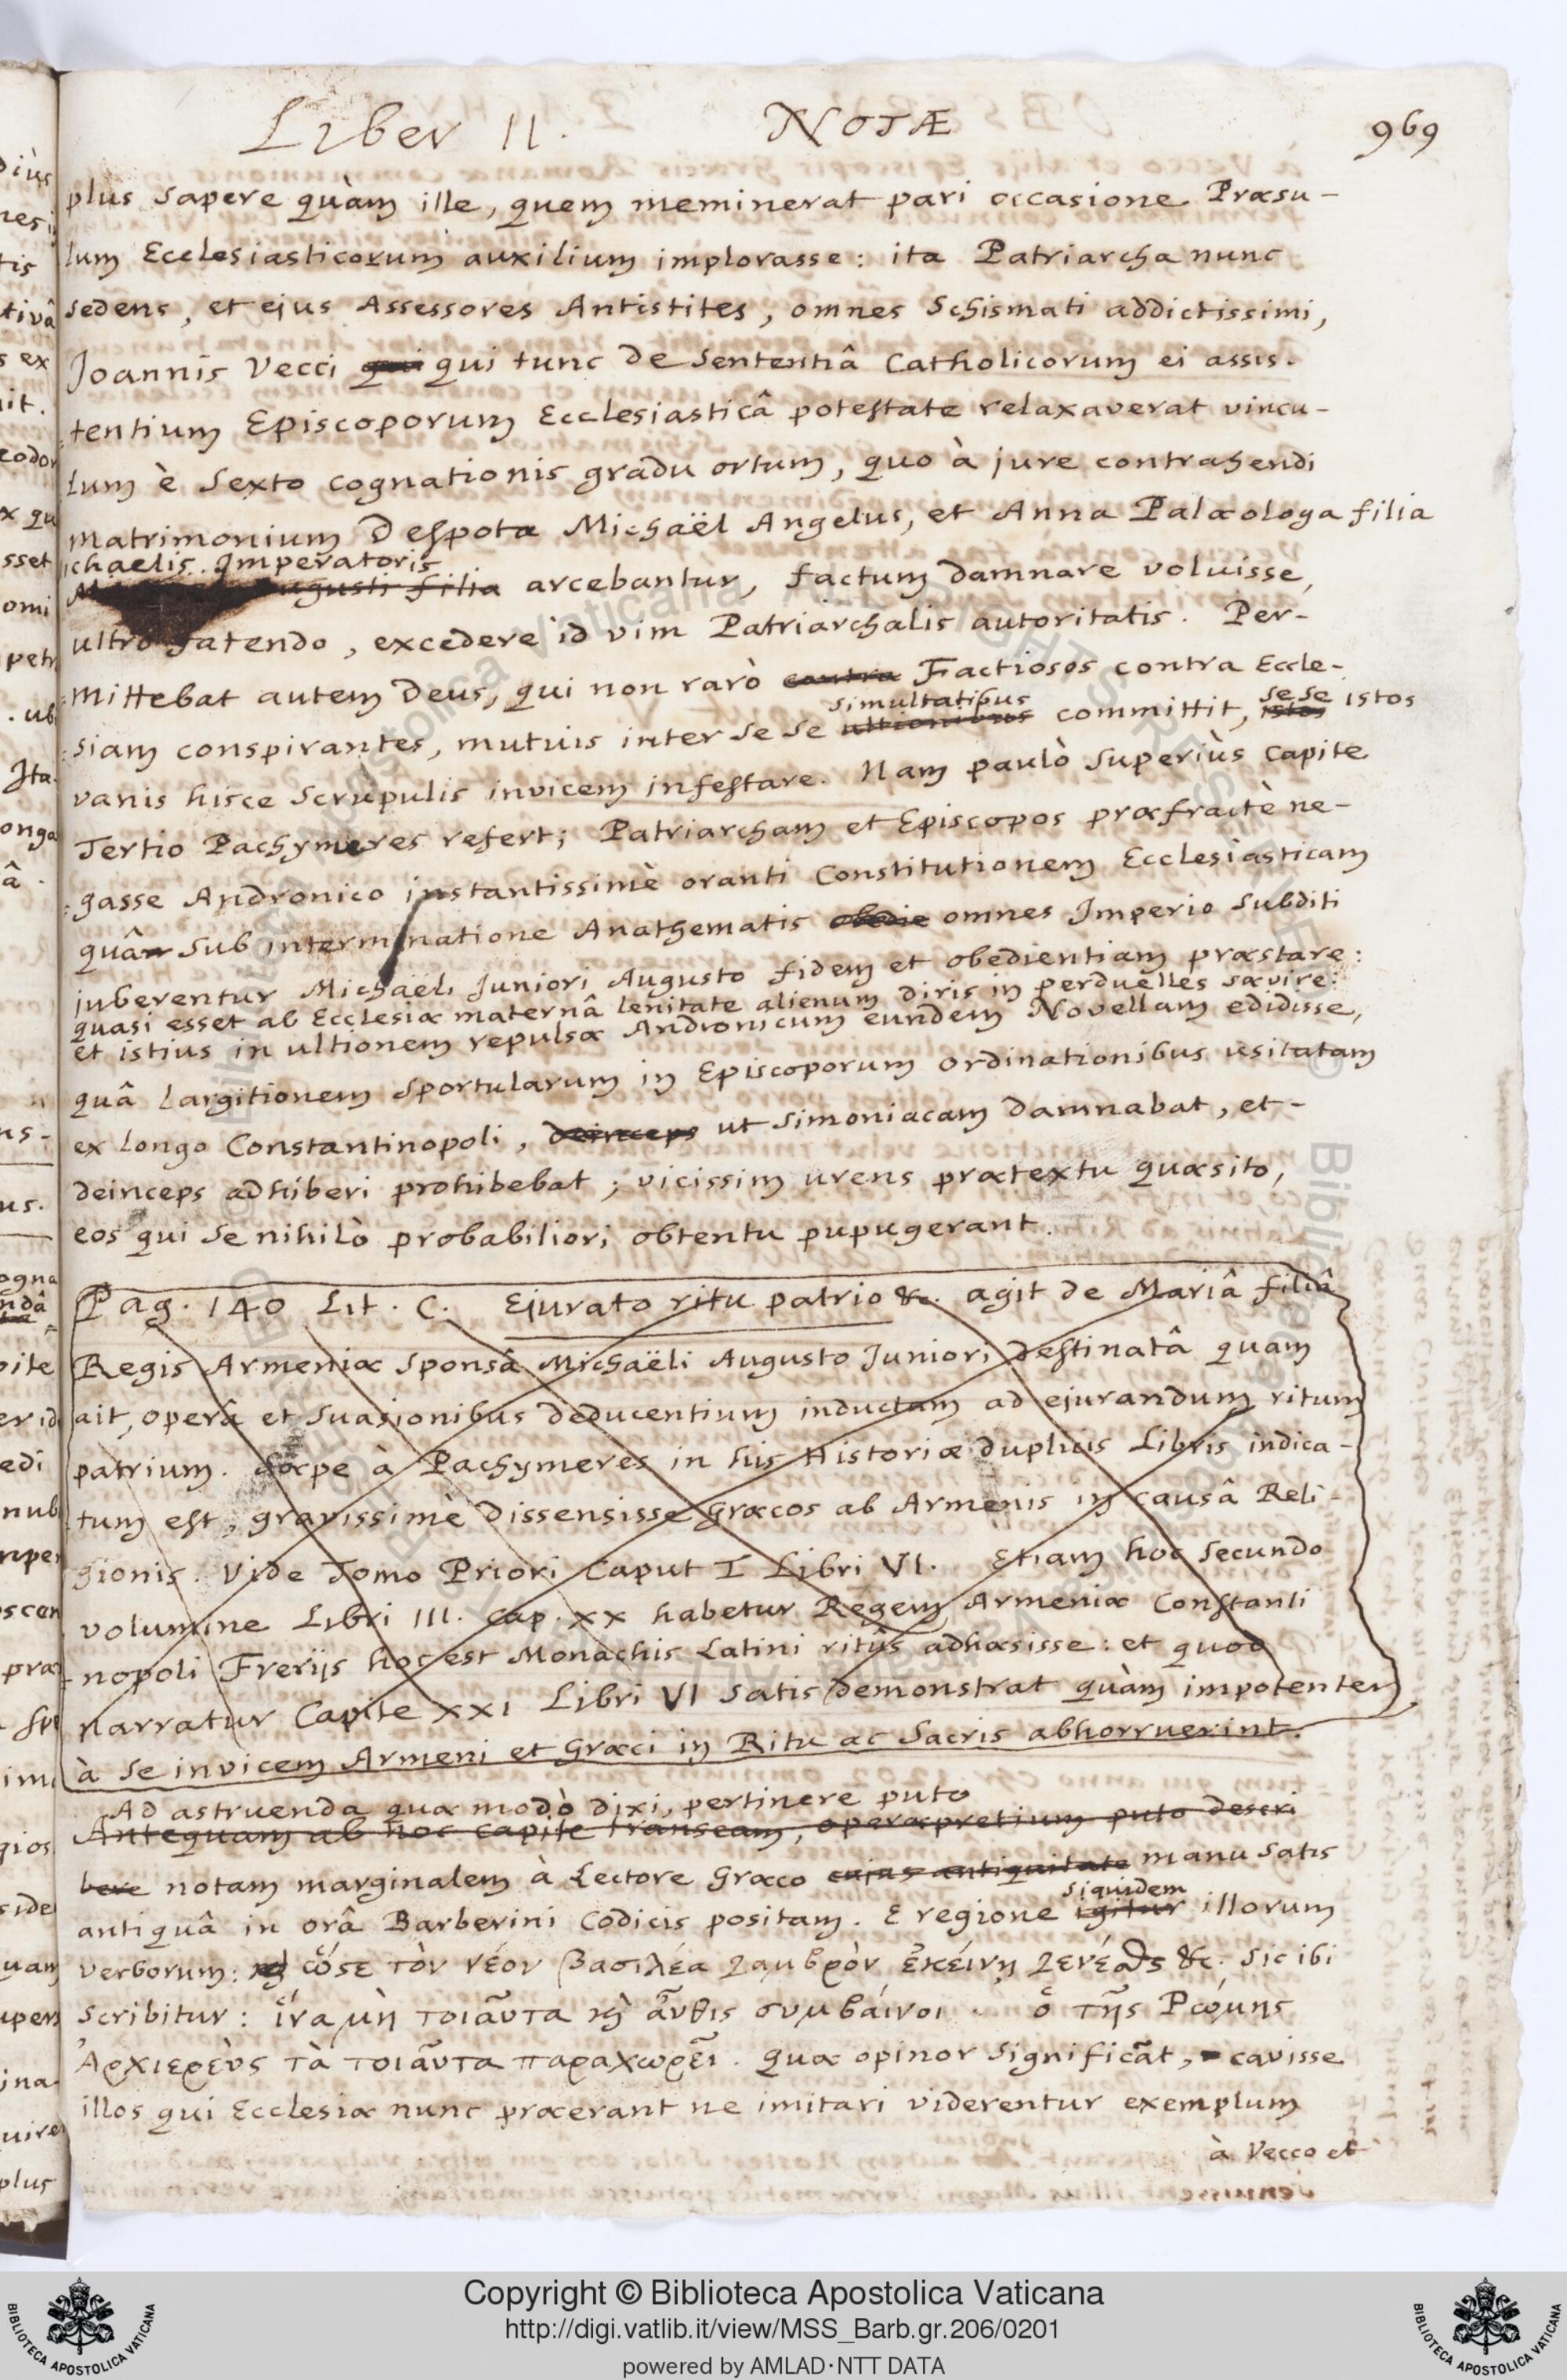 Liber II. NOTÆ 969
plus sapere quàm ille, quem meminerat pari occasione Præsu-
lum Ecclesiasticorum auxilium implorasse: ita Patriarcha nunc
sedens, et ejus Assessores Antistites, omnes Schismati addictissimi,
Joannis Vecci qui qui tunc de sententiâ Catholicorum ei assis-
tentium Episcoporum Ecclesiasticâ potestate relaxaverat vincu-
lum è sexto cognationis gradu ortum, quo à jure contrahendi
matrimonium Despota Michaël Angelus, et Anna Palæologa filia
ichaelis Imperatoris
ugusti filia arcebantur, factum damnare voluisse,
ultro fatendo, excedere id vim Patriarchalis autoritatis. Per-
mittebat autem Deus, qui non rarò contra Factiosos contra Eccle-
simultatibus sese
siam conspirantes, mutuis inter se se ultionibus committit, istos istos
vanis hisce scrupulis invicem infestare. Nam paulò superiùs capite
Tertio Pachymeres refert; Patriarcham et Episcopos præfractè ne-
gasse Andronico instantissimè oranti Constitutionem Ecclesiasticam
quâ sub interminatione Anathematis obedie omnes Imperio subditi
juberentur Michaëli Juniori Augusto fidem et obedientiam præstare:
quasi esset ab Ecclesiæ maternâ lenitate alienum diris in perduelles sævire:
et istius in ultionem repulsæ Andronicum eundem Novellam edidisse,
quâ largitionem sportularum in Episcoporum ordinationibus usitatam
ex longo Constantinopoli, deinceps ut simoniacam damnabat, et
deinceps adhiberi prohibebat; vicissim urens prætextu quæsito,
eos qui se nihilò probabiliori obtentu pupugerant.
Pag. 140 Lit. C. Ejurato ritu patrio &c. agit de Mariâ filiâ
Regis Armeniæ sponsâ Michaëli Augusto Juniori destinatâ quam
ait, operâ et suasionibus deducentium inductam ad ejurandum ritum
patrium. Sæpe à Pachymeres in his Historiæ duplicis Libris indica-
tum est, gravissimè dissensisse Græcos ab Armenis in causâ Reli-
gionis. Vide Tomo Priori Caput I Libri VI. Etiam hoc secundo
volumine Libri III. Cap. XX habetur Regem Armeniæ Constanti
nopoli Frerijs hoc est Monachis Latini ritûs adhæsisse: et quod
narratur Capite XXI Libri VI satis demonstrat quàm impotenter
à se invicem Armeni et Græci in Ritu ac Sacris abhorruerint.
Ad astruenda quæ modò dixi, pertinere puto
Antequam ab hoc capite transeam, operæpretium puto descri
bere notam marginalem à Lectore Græco cujus antiquitate manu satis
siquidem
antiquâ in orâ Barberini Codicis positam. E regione igitur illorum
verborum: καὶ ὥσε τὸν νέον βασιλέα γαμβρὸν ἐκείνῃ γενέσθαι &c. sic ibi
scribitur: ἵνα μὴ τοιαῦτα καὶ αὖθις συμβαίνοι. ὁ τῆς Ρώμης
Ἀρχιερεὺς τὰ τοιαῦτα παραχωρεῖ. quæ opinor significāt, cavisse
illos qui Ecclesiæ nunc præerant ne imitari viderentur exemplum
à Vecco et
Copyright © Biblioteca Apostolica Vaticana
http://digi.vatlib.it/view/MSS_Barb.gr.206/0201
powered by AMLAD·NTT DATA
BIBLIOTECA APOSTOLICA VATICANA
BIBLIOTECA APOSTOLICA VATICANA